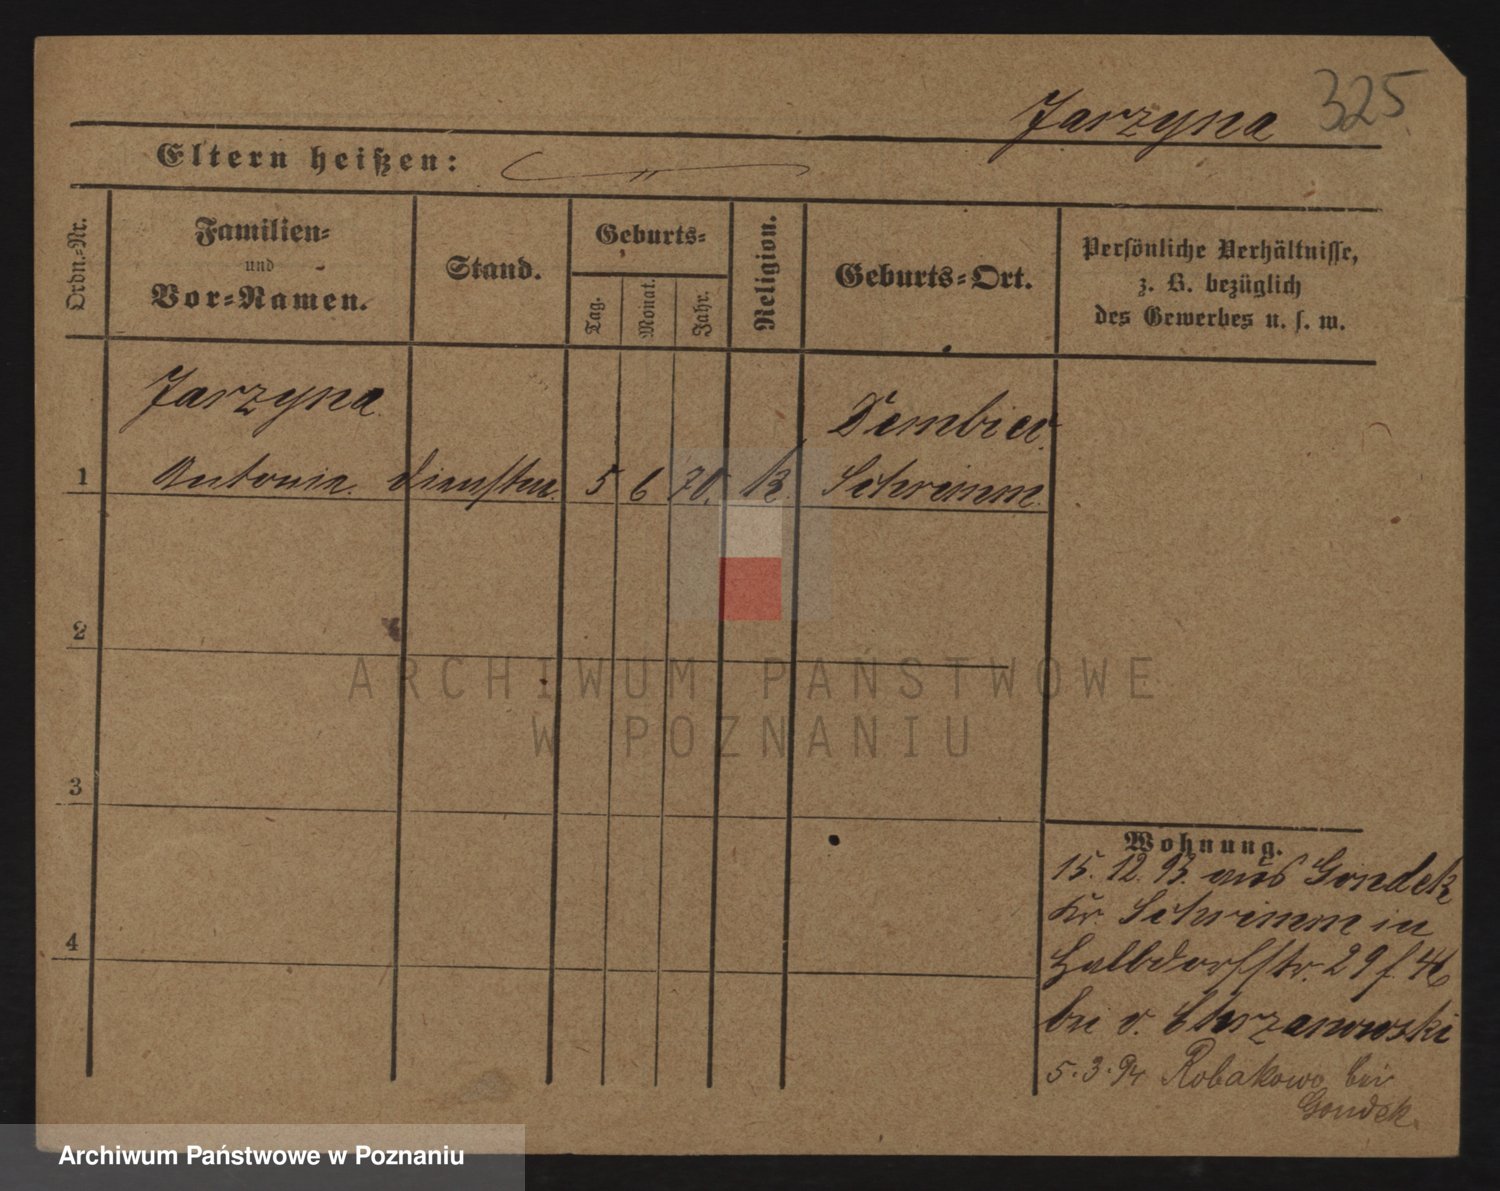 Jarzyna 325
Eltern heißen:
Ordn.-Nr.
Familien-
und
Vor-Namen.
Stand.
Geburts-
Tag.
Monat.
Jahr.
Religion.
Geburts-Ort.
Persönliche Verhältnisse,
z. B. bezüglich
des Gewerbes u. s. w.
Jarzyna
1 Antonie. 5 6 70. k.
Schrimm.
2
3
4
Wohnung.
15. 12. 93. aus Gondek
Kr. Schrimm in
Halbdorfstr. 29 f. 46
bei v. Chrzanowski
5.3.94 Robakowo bei
Gondek.
ARCHIWUM PAŃSTWOWE
W POZNANIU
Archiwum Państwowe w Poznaniu